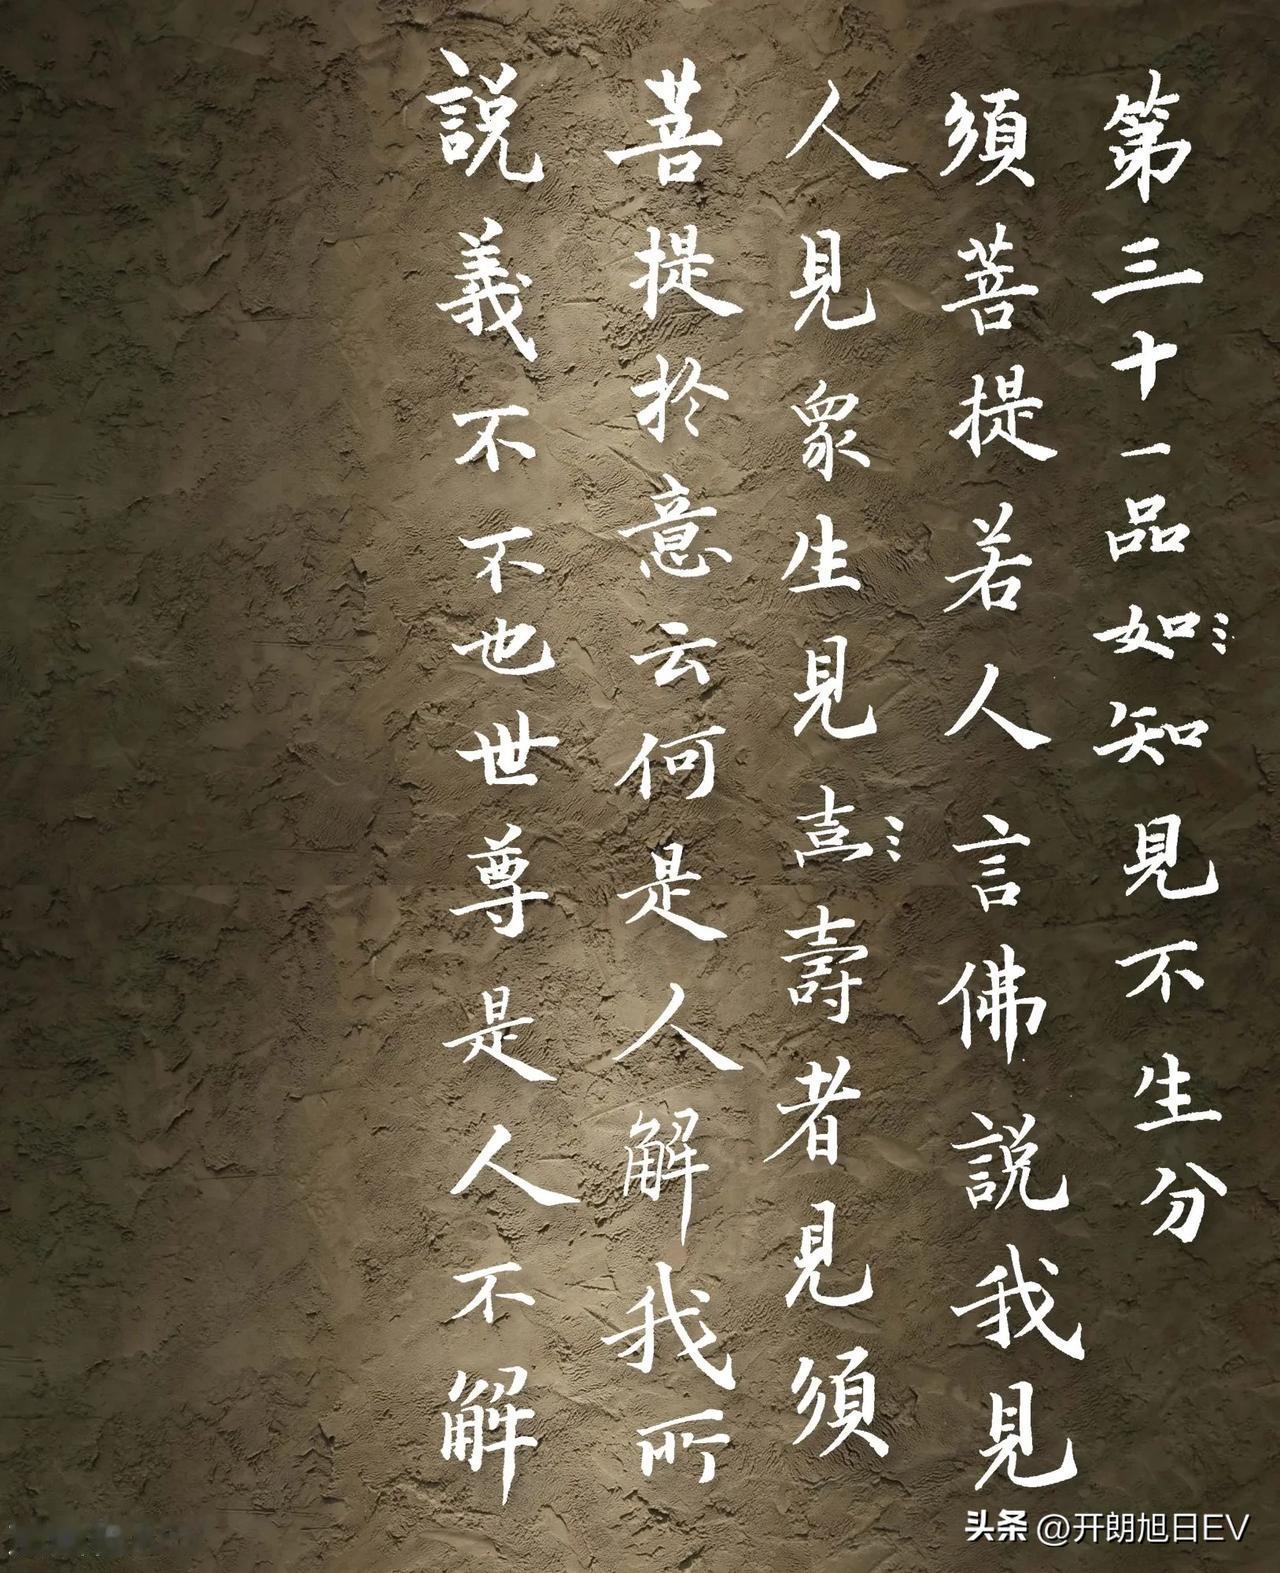 第三十一品如知見不生分
須菩提若人言佛說我見
人見眾生見壽者見須
菩提於意云何是人解我所
說義不不也世尊是人不解
头条 @开朗旭日EV